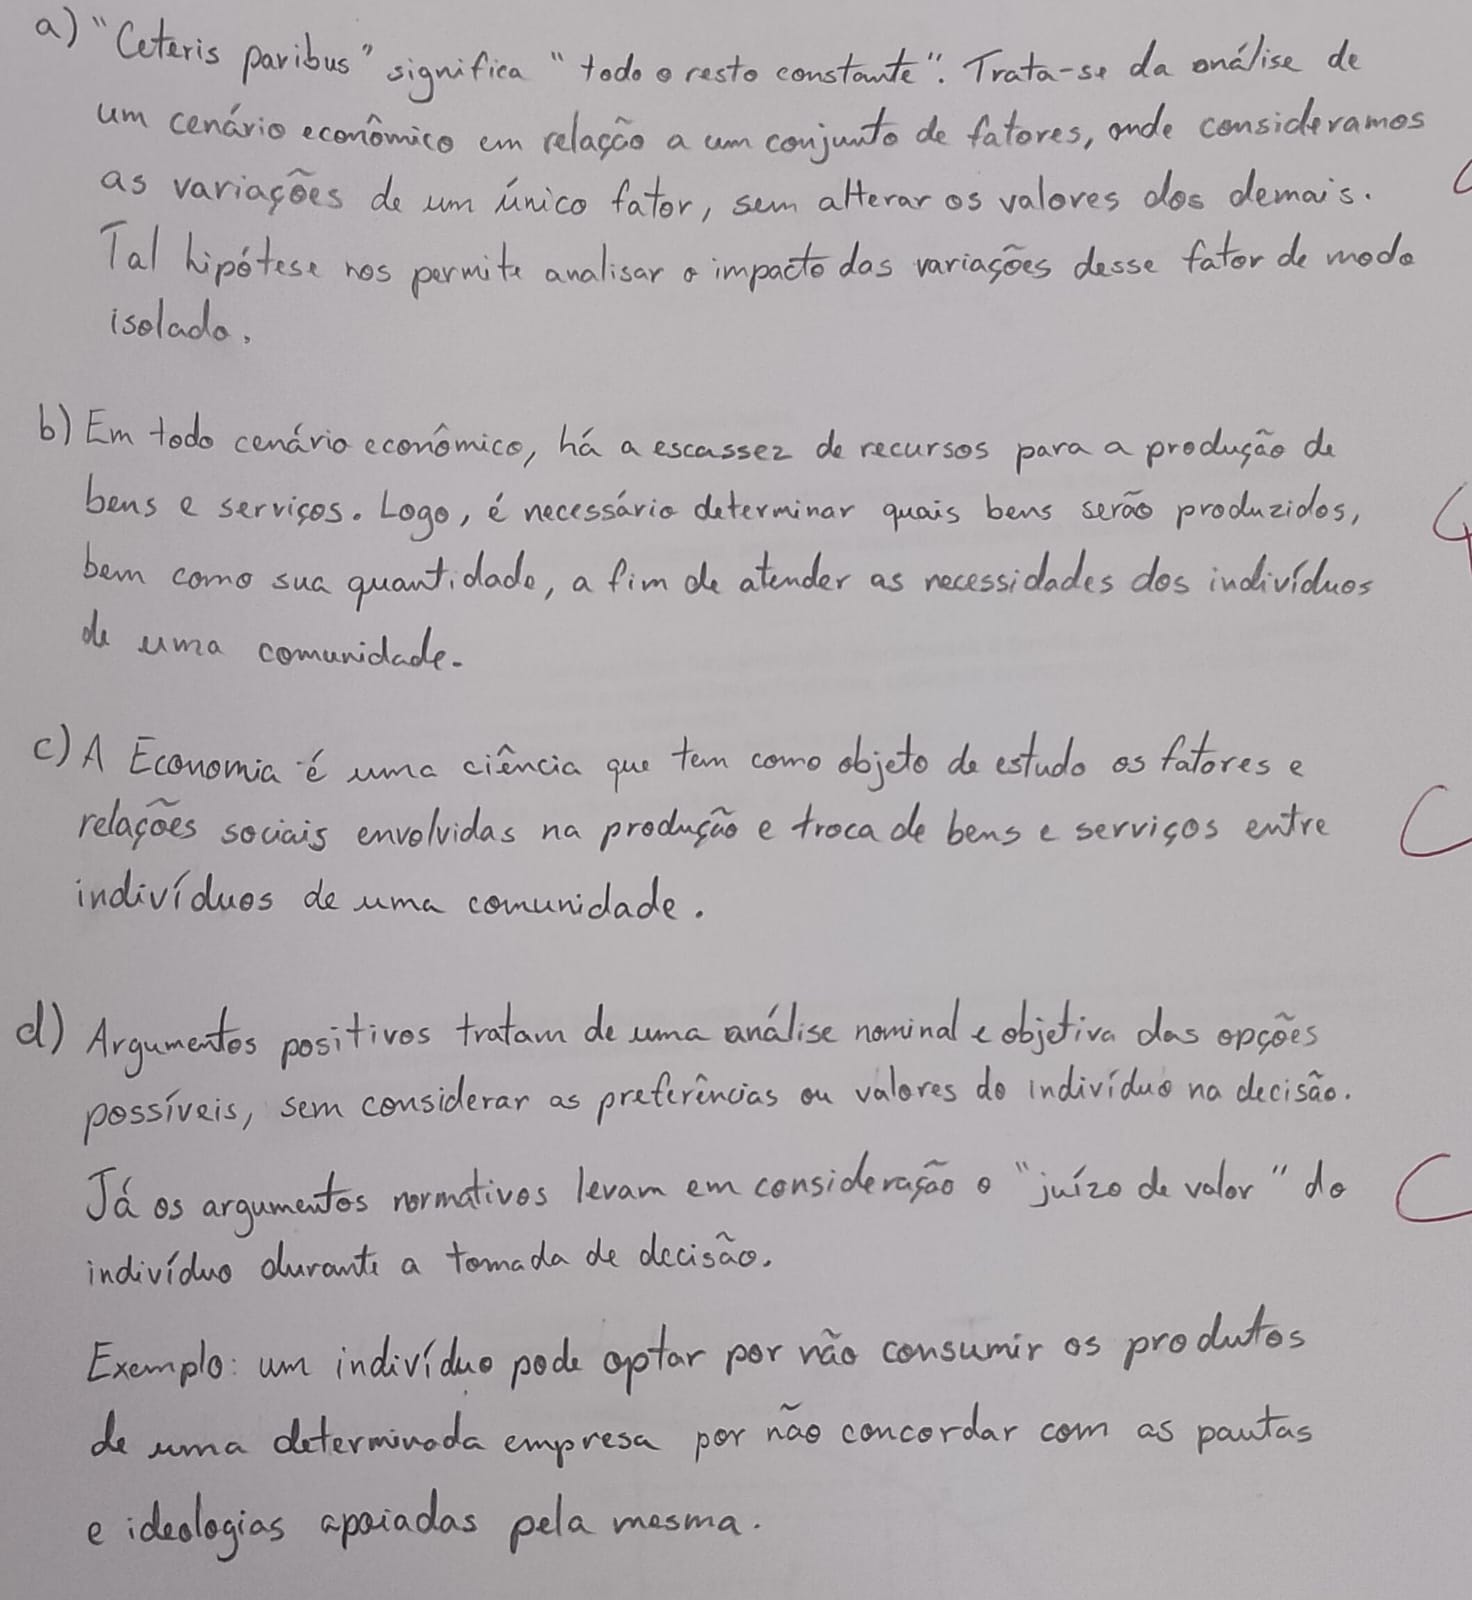 a) "Ceteris paribus" significa "todo o resto constante". Trata-se da análise de
um cenário econômico em relação a um conjunto de fatores, onde consideramos
as variações de um único fator, sem alterar os valores dos demais.
Tal hipótese nos permite analisar o impacto das variações desse fator de modo
isolado.
b) Em todo cenário econômico, há a escassez de recursos para a produção de
bens e serviços. Logo, é necessário determinar quais bens serão produzidos,
bem como sua quantidade, a fim de atender as necessidades dos indivíduos
de uma comunidade.
c) A Economia é uma ciência que tem como objeto de estudo os fatores e
relações sociais envolvidas na produção e troca de bens e serviços entre
indivíduos de uma comunidade.
d) Argumentos positivos tratam de uma análise nominal e objetiva das opções
possíveis, sem considerar as preferências ou valores do indivíduo na decisão.
Já os argumentos normativos levam em consideração o "juízo de valor" do
indivíduo durante a tomada de decisão.
Exemplo: um indivíduo pode optar por não consumir os produtos
de uma determinada empresa por não concordar com as pautas
e ideologias apoiadas pela mesma.